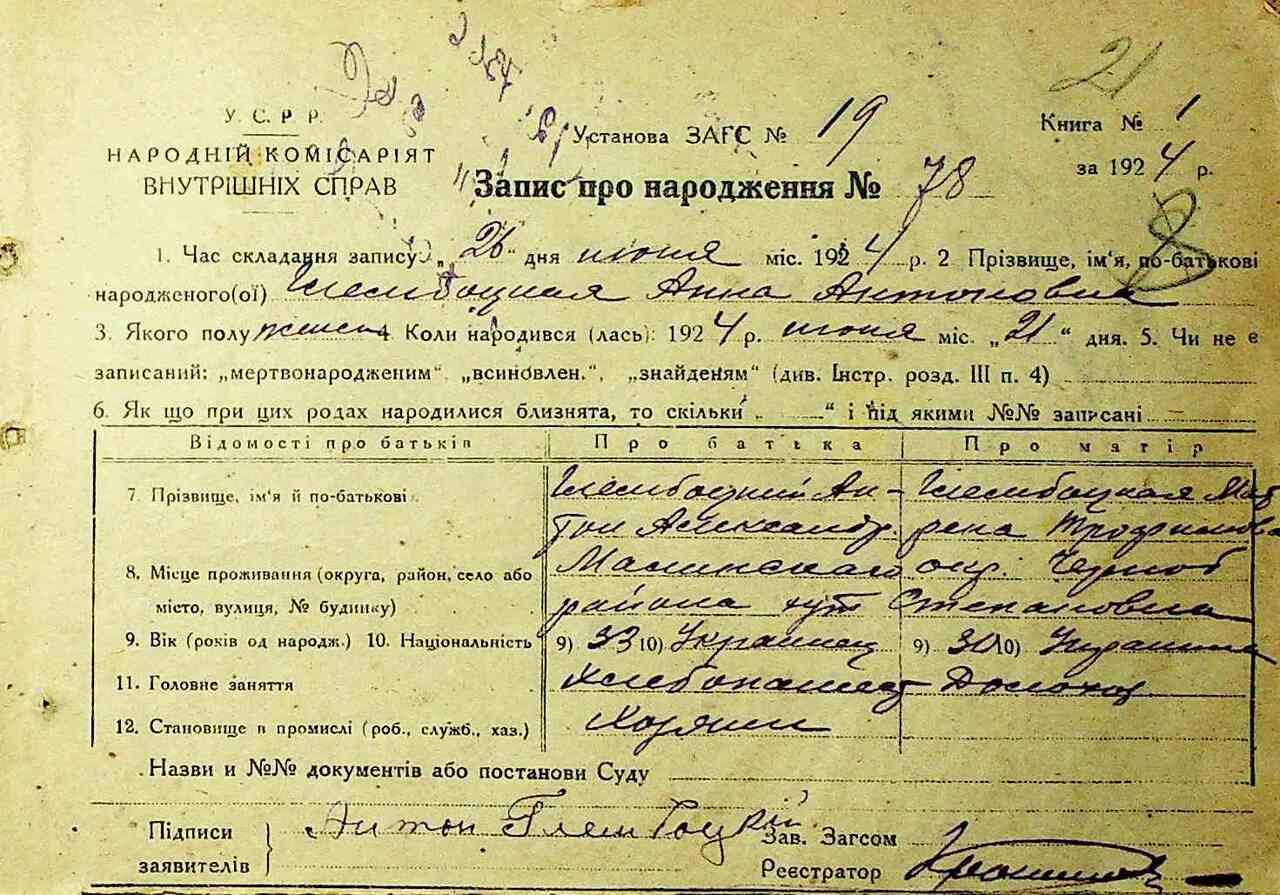 21
У. С. Р. Р.
Установа ЗАГС № 19
Книга № 1
НАРОДНІЙ КОМІСАРІЯТ
за 1924 р.
ВНУТРІШНІХ СПРАВ
Запис про народження № 78
8
1. Час складання запису „26“ дня июня міс. 1924 р. 2 Прізвище, ім'я, по-батькові
народженого(ої) Глембоцкая Анна Антоновна
3. Якого полу женск 4 Коли народився (лась): 1924 р. июня міс. „21“ дня. 5. Чи не є
записаний: „мертвонародженим“, „всиновлен.“, „знайденям“ (див. Інстр. розд. III п. 4)
6. Як що при цих родах народилися близнята, то скільки „ “ і під якими №№ записані —
Відомості про батьків Про батька Про матір
7. Прізвище, ім'я й по-батькові Глембоцкий Ан- Глембоцкая Мат
тон Александр. рена Трофимовна
8. Місце проживання (округа, район, село або Малинскаго окр. Черноб
місто, вулиця, № будинку) района хут Степановка
9. Вік (років од народж.) 10. Національність 9) 33 10) Украинец 9) 30 10) Украинка
11. Головне заняття Хлебопашец Домохоз
12. Становище в промислі (роб., служб., хаз.) Хозяин
Назви и №№ документів або постанови Суду
Підписи Антон Глембоцкій Зав. Загсом
заявителів Реєстратор